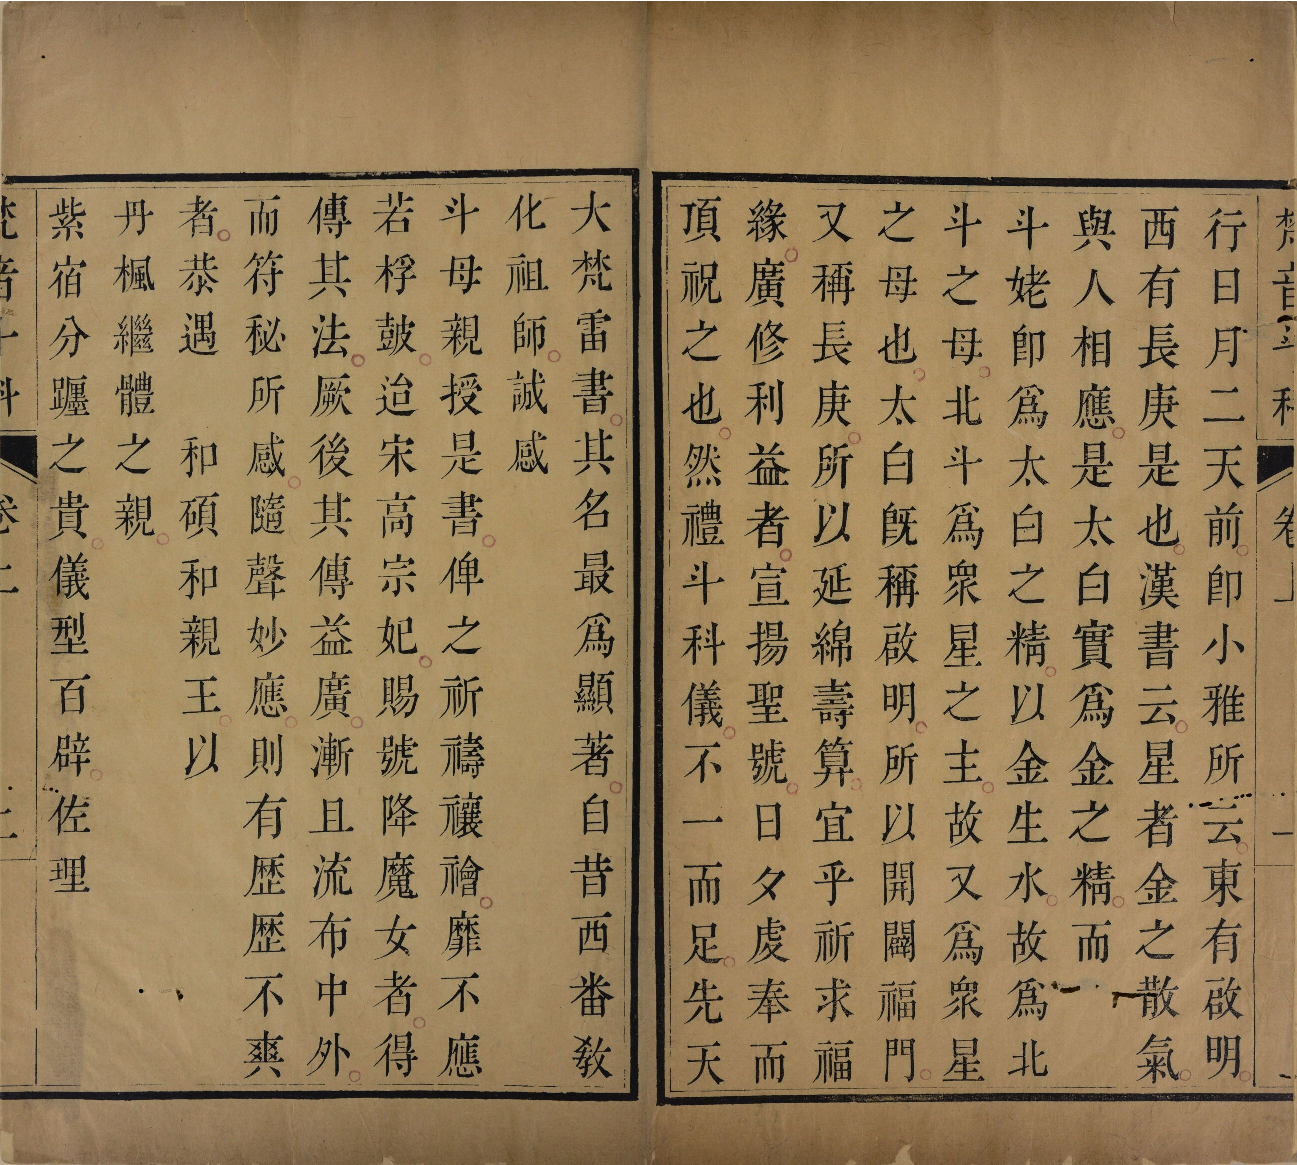 梵音斗科 卷上 一
行日月二天前即小雅所云東有啟明
西有長庚是也漢書云星者金之散氣
與人相應是太白實為金之精而
斗姥即為太白之精以金生水故為北
斗之母北斗為衆星之主故又為衆星
之母也太白旣稱啟明所以開闢福門
又稱長庚所以延綿壽算宜乎祈求福
緣廣修利益者宣揚聖號日夕虔奉而
頂祝之也然禮斗科儀不一而足先天
大梵雷書其名最為顯著自昔西畨教
化祖師誠感
斗母親授是書俾之祈禱禳禬靡不應
若桴鼓迨宋高宗妃賜號降魔女者得
傳其法厥後其傳益廣漸且流布中外
而符秘所感隨聲妙應則有歷歷不爽
者恭遇 和碩和親王以
丹楓繼體之親
紫宿分躔之貴儀型百辟佐理
梵音斗科 卷上